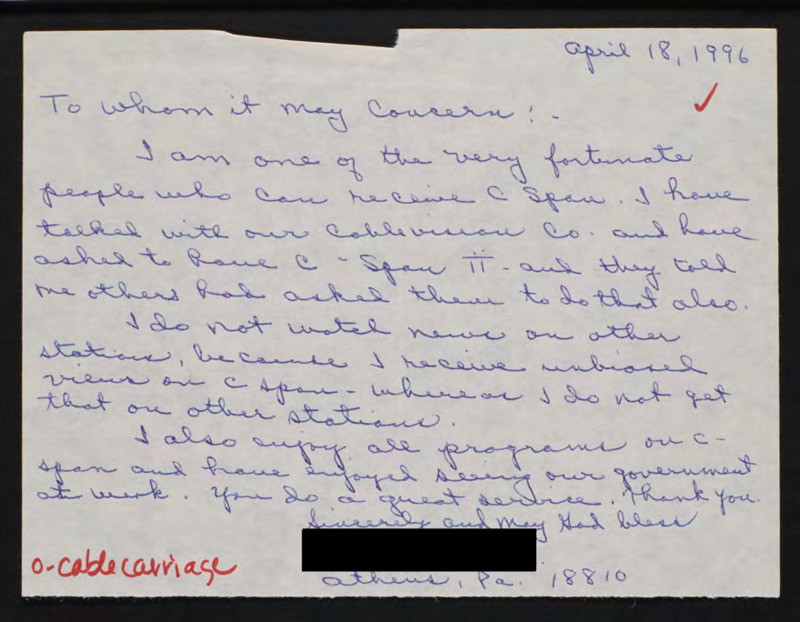 April 18, 1996
To whom it may Concern: -
I am one of the very fortunate
people who can receive C Span. I have
talked with our Cablevision Co. and have
asked to have C - Span II - and they told
me others had asked them to do that also.
I do not watch news on other
stations, because I receive unbiased
views on C span - whereas I do not get
that on other stations.
I also enjoy all programs on C-
span and have enjoyed seeing our government
at work. You do a great service. Thank you.
Sincerely and May God bless
o-cable carriage
Athens, Pa. 18810